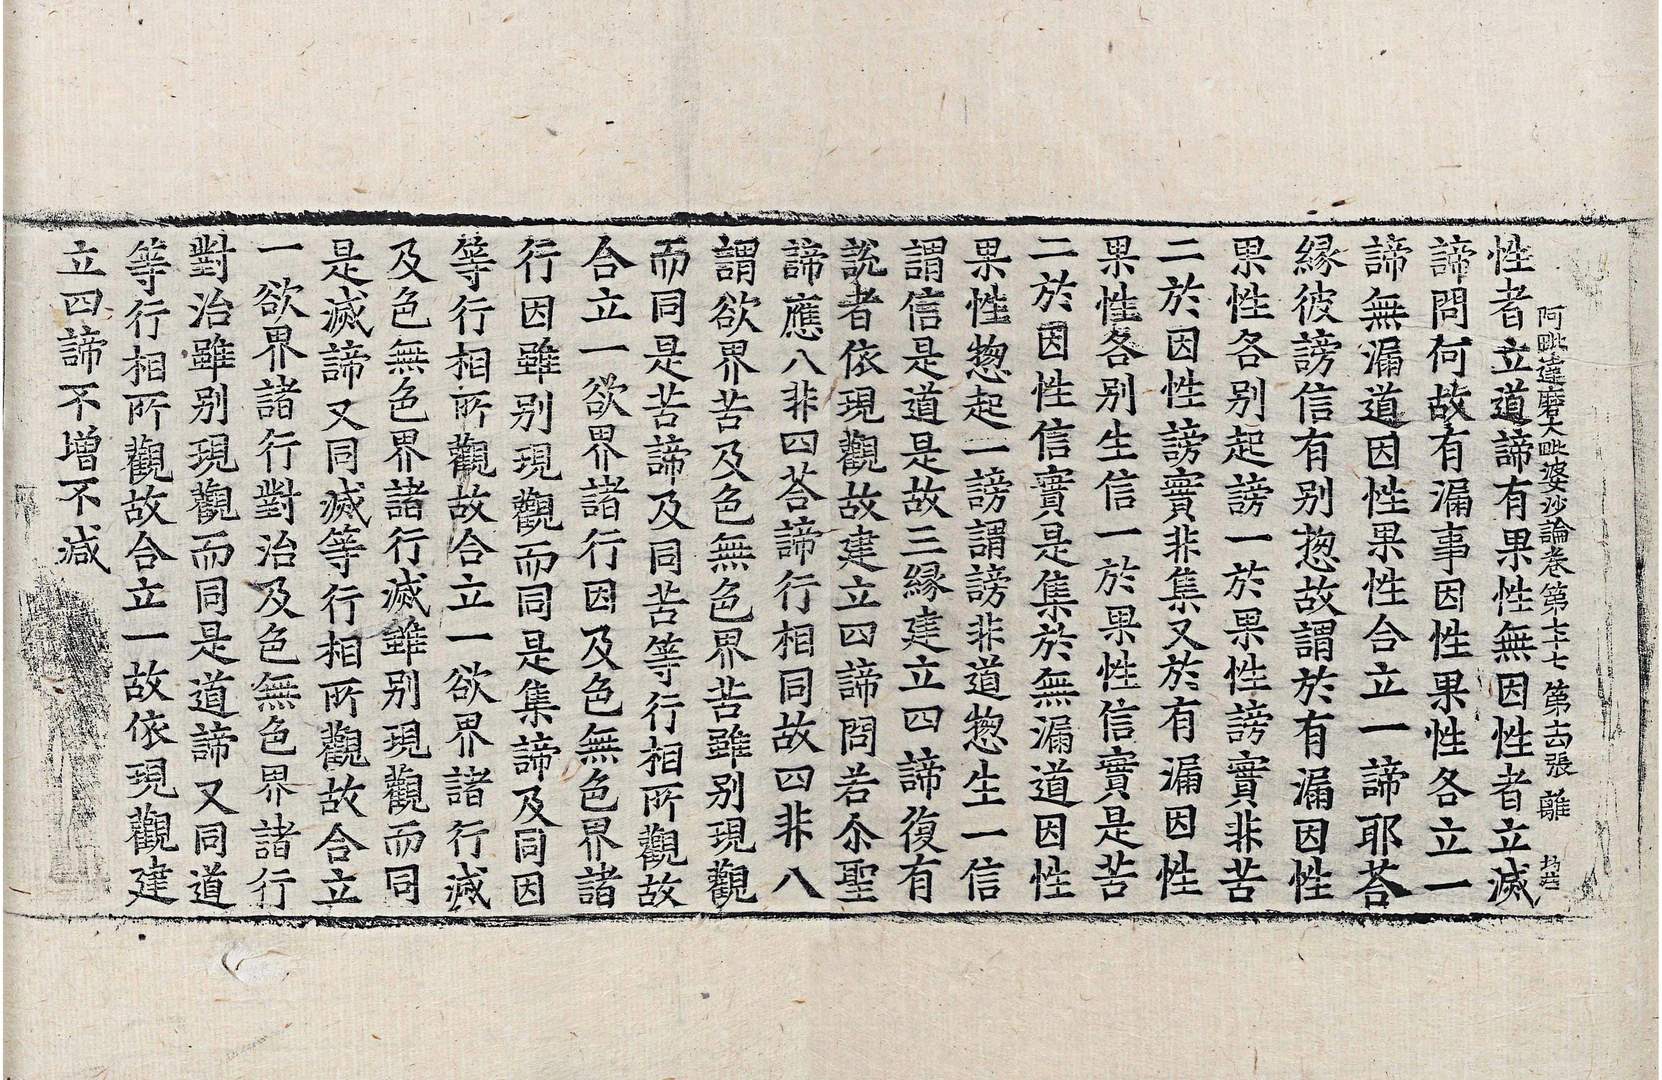 阿毗達磨大毗婆沙論卷第七十七 第 張
性者立道諦有果性無因性者立滅
諦問何故有漏事因性果性各立一
諦無漏道因性果性合立一諦耶荅
縁彼謗信有别惣故謂於有漏因性
果性各别起謗一於果性謗實非苦
二於因性謗實非集又於有漏因性
果性各别生信一於果性信實是苦
二於因性信實是集於無漏道因性
果性惣起一謗謂謗非道惣生一信
謂信是道是故三縁建立四諦復有
說者依現觀故建立四諦問若尒聖
諦應八非四荅諦行相同故四非八
謂欲界苦及色無色界苦雖别現觀
而同是苦諦及同苦等行相所觀故
合立一欲界諸行因及色無色界諸
行因雖别現觀而同是集諦及同因
等行相所觀故合立一欲界諸行滅
及色無色界諸行滅雖别現觀而同
是滅諦又同滅等行相所觀故合立
一欲界諸行對治及色無色界諸行
對治雖别現觀而同是道諦又同道
等行相所觀故合立一故依現觀建
立四諦不增不减